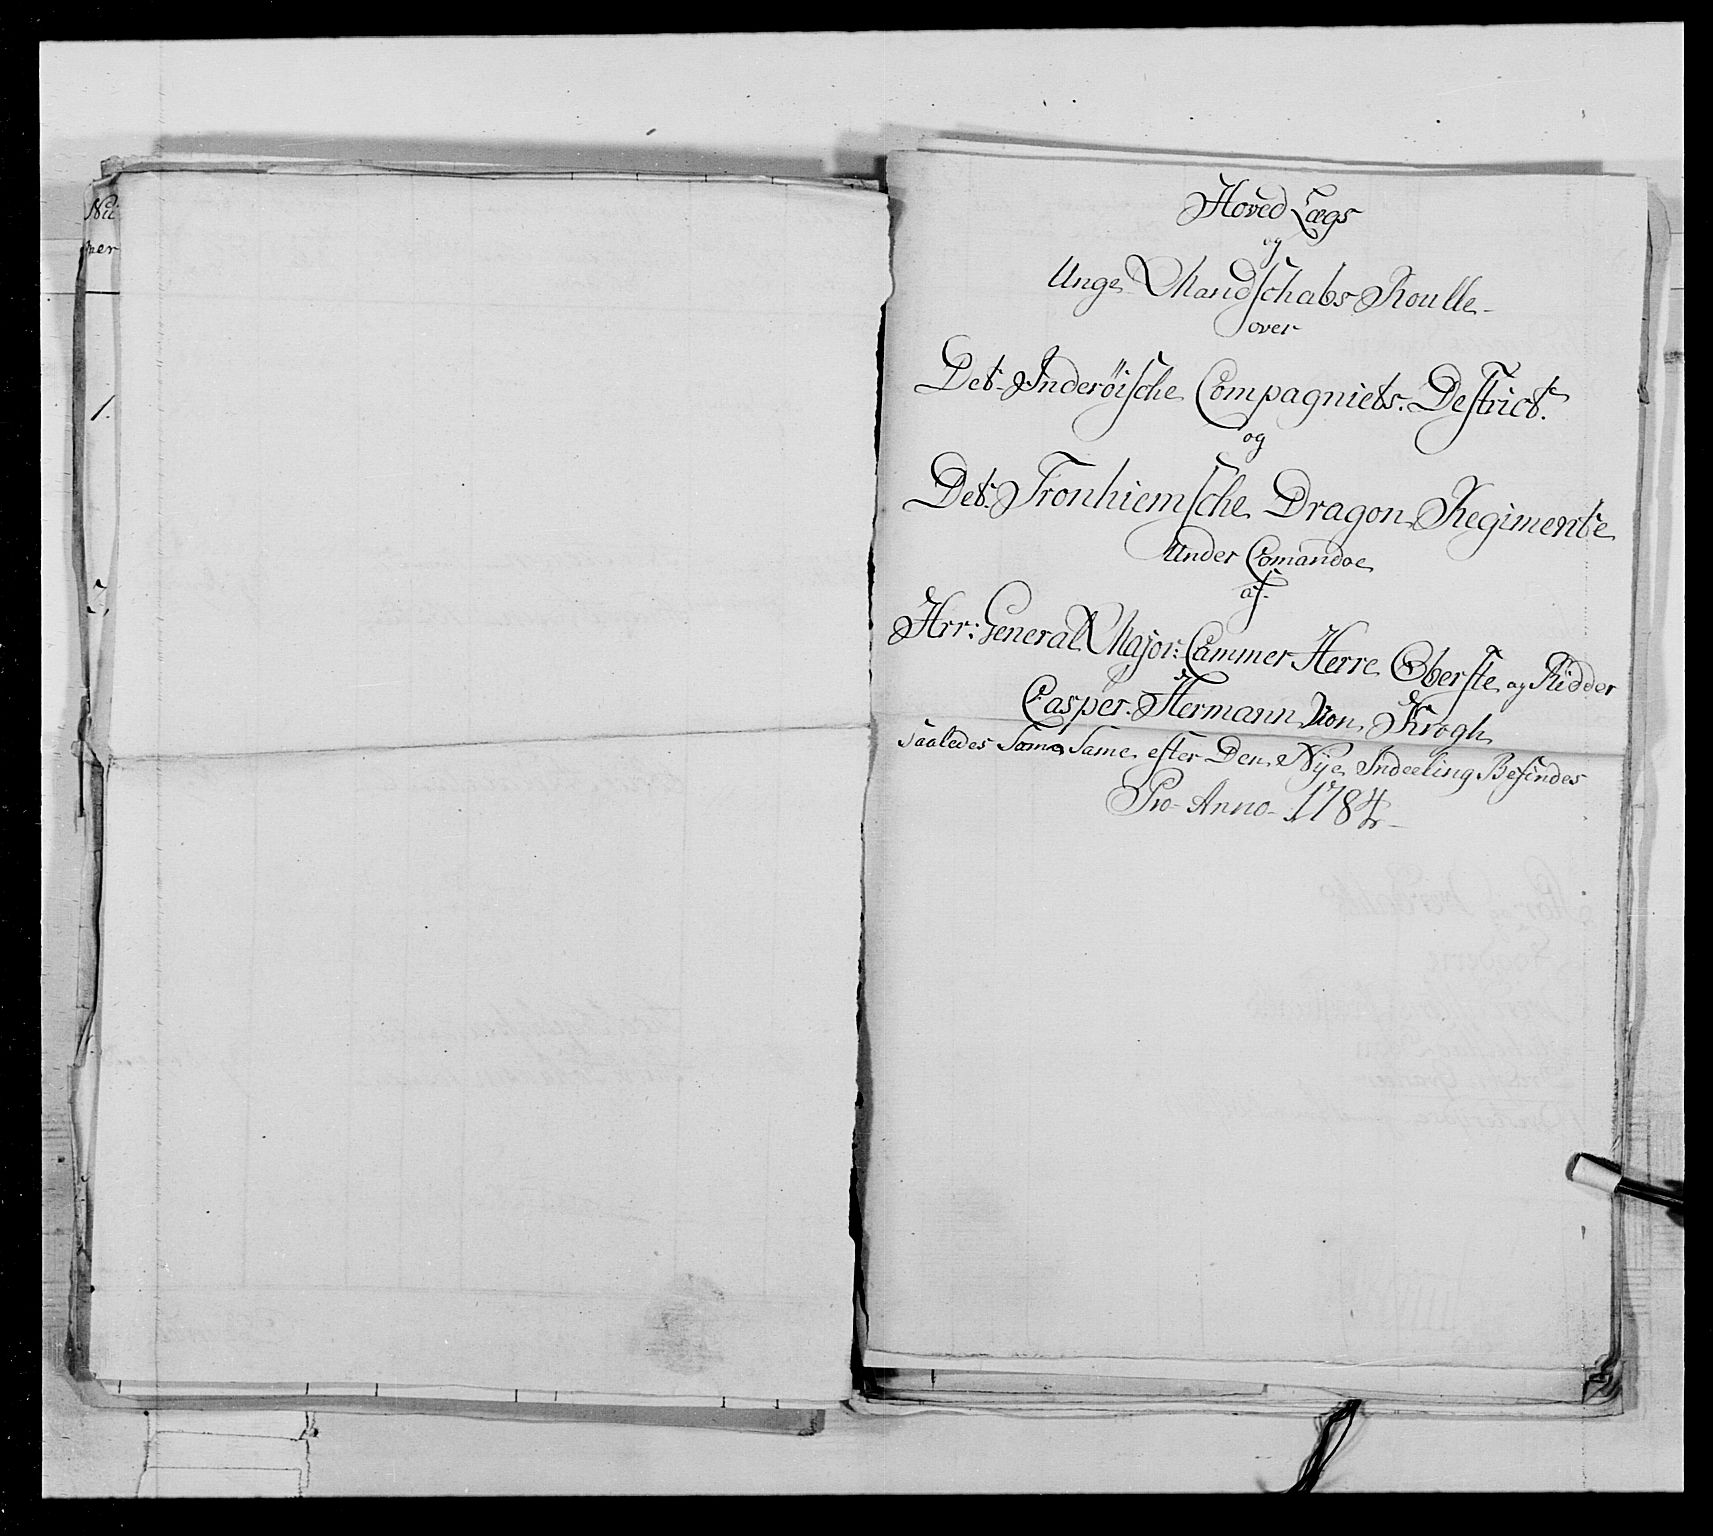 Nu
mer
1.
2,
Hoved Lægs
og
Unge Mandschabs Roulle
over
Det Inderöische Compagniets District.
og
Det Tronhiemsche Dragon Regimente
Under Comandoe
af
Hrr: General Major: Cammer Herre Oberste og Ridder
Casper Hermann Von Krogh
saaledes Som Same efter Den Nÿe Indeeling Befindes
Pro Anno 1784